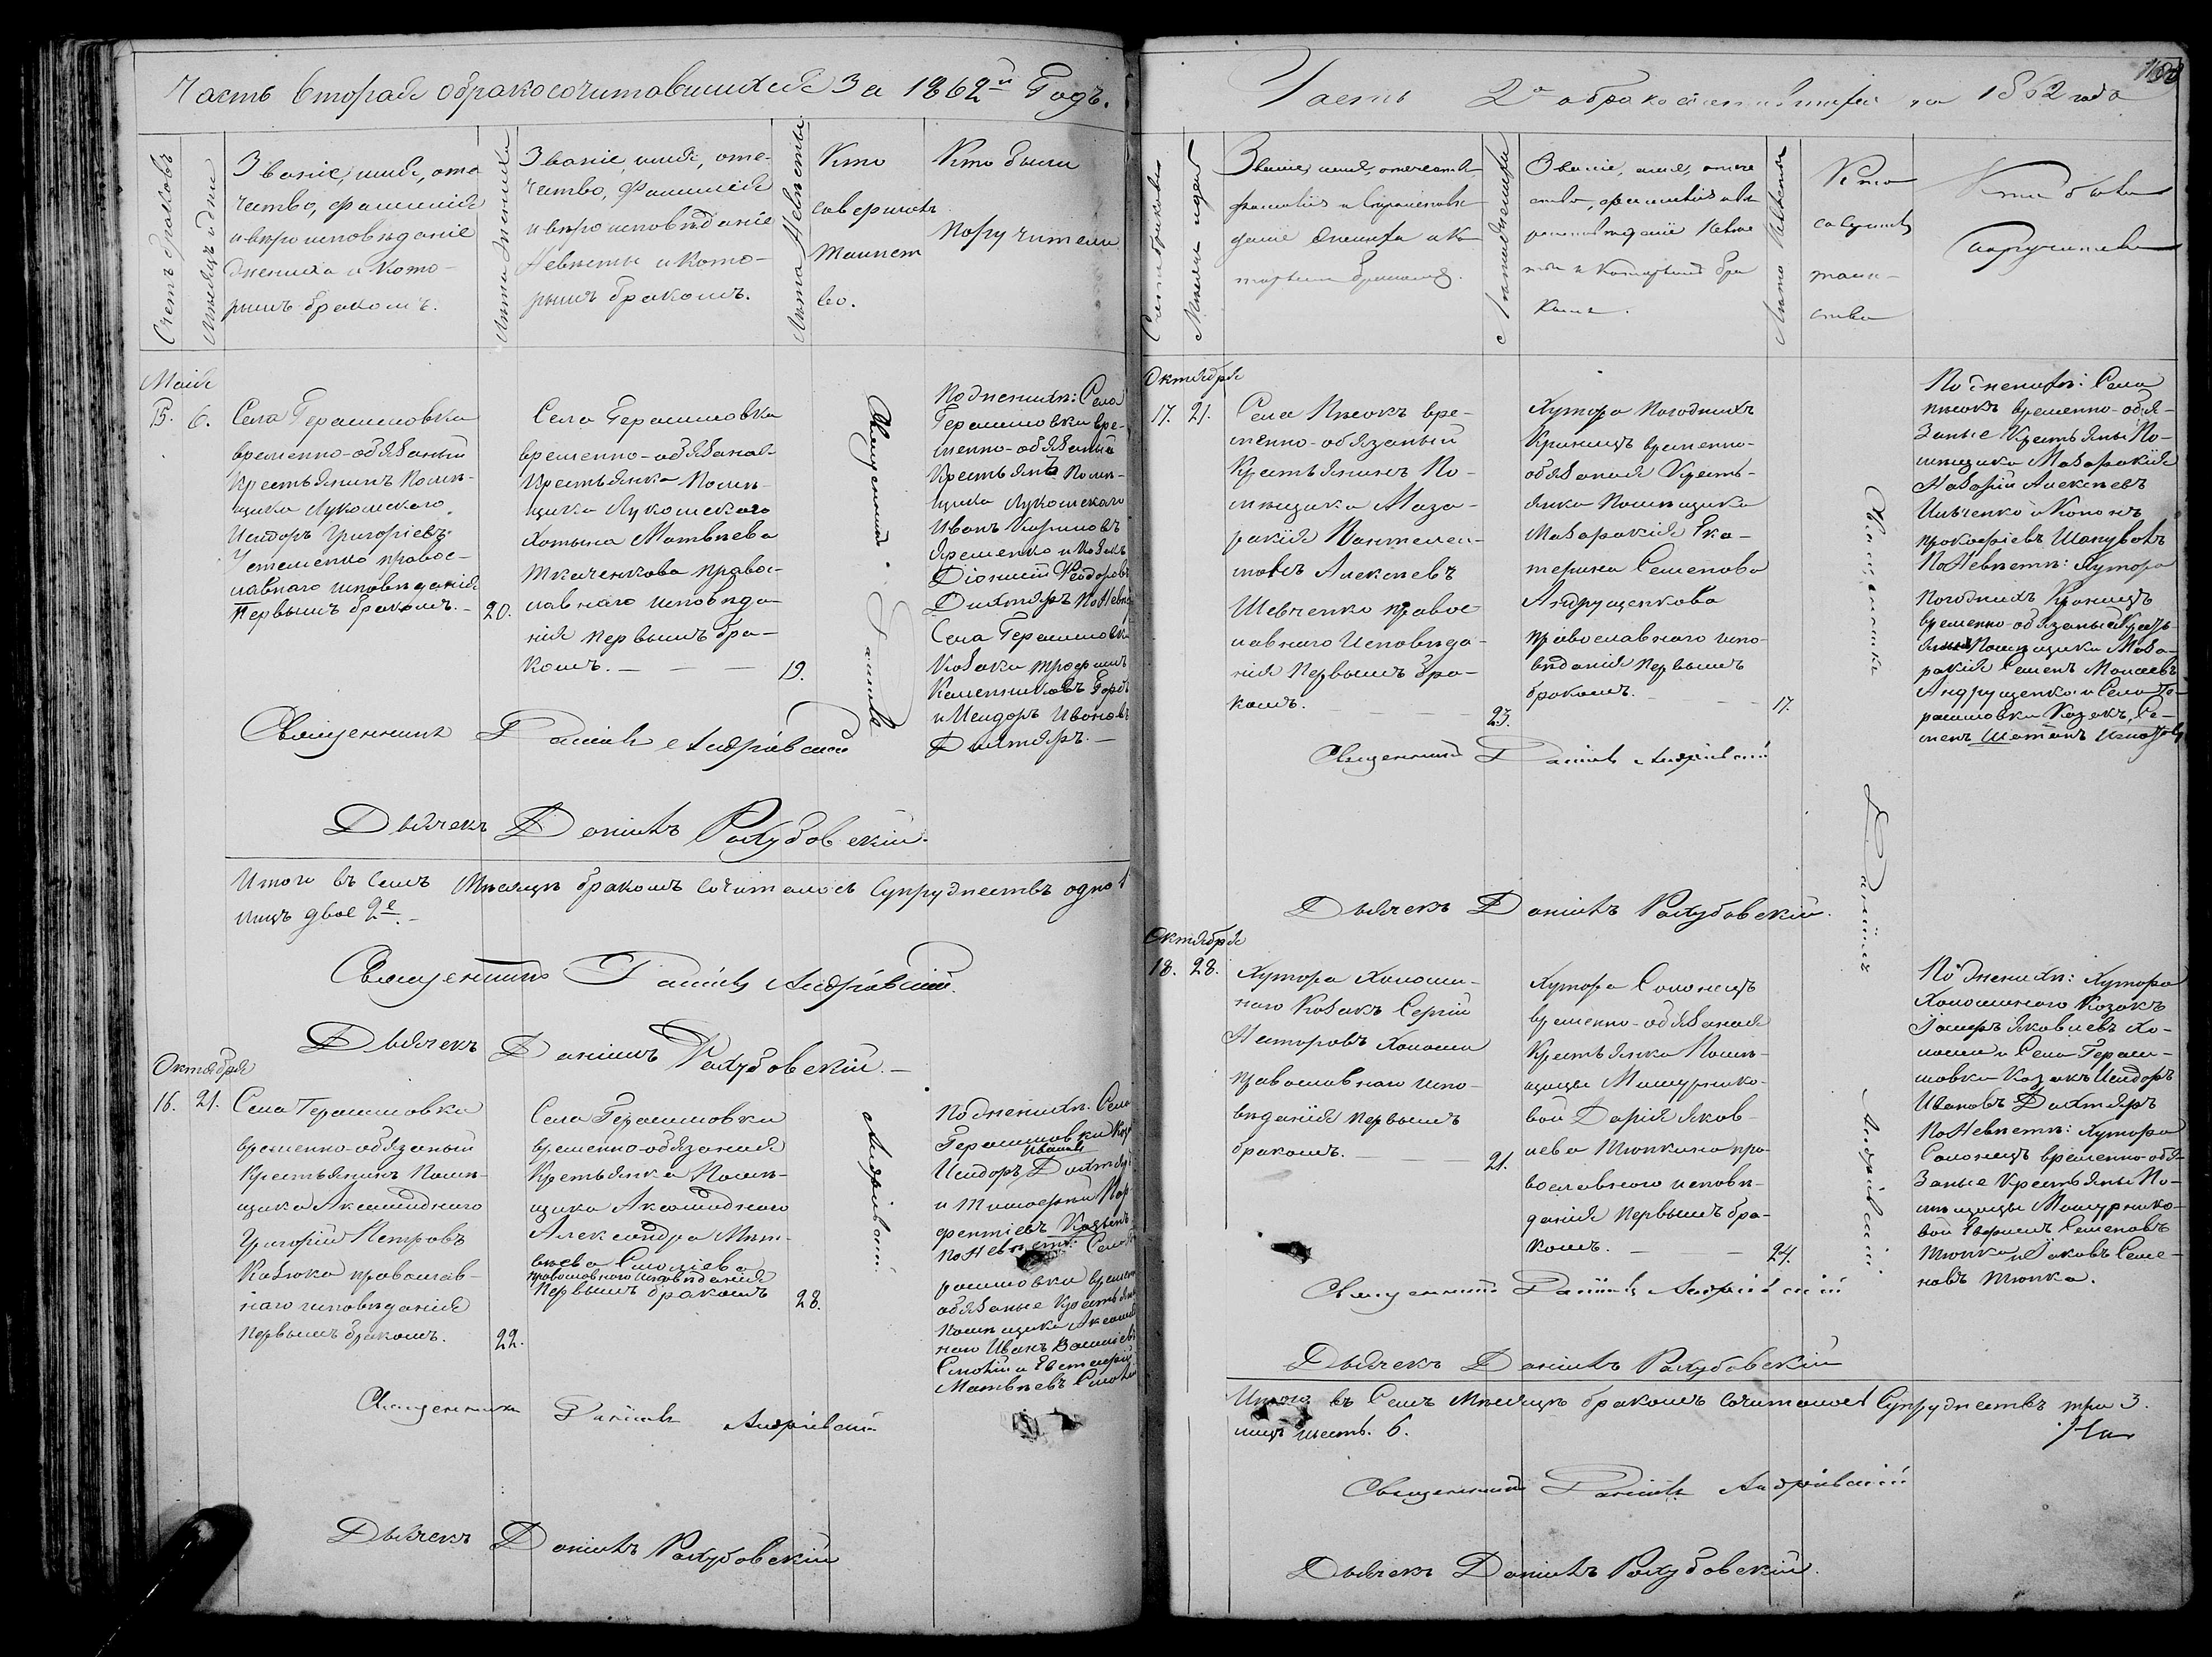 Часть вторая о бракосочитавшихся За 1862й Годъ.
Счетъ браковъ
Мѣсяцъ и дни
Званіе, имя, оте-
чество, Фамилія
и вѣроисповѣданіе
Жениха и кото-
рымъ бракомъ.
Лѣта Жениха
Званіе, имя, оте-
чество, Фамилія
и вѣроисповѣданіе
Невѣсты и кото-
рымъ бракомъ.
Лѣта Невѣсты
Кто
совершалъ
Таинст
во.
Кто были
поручители
Маія
15. 6.
Села Герасимовки
временно-обязаный
Крестьянинъ помѣ-
щика Лукомскаго
Исидоръ Григоріевъ
Устименко правос-
лавнаго исповѣданія
первымъ бракомъ. 20.
Села Герасимовки
временно-обязаная
Крестьянка помѣ-
щика Лукомскаго
Матвѣева
Ткаченкова правос-
лавнаго исповѣда-
нія первымъ бра-
комъ. 19.
По женихѣ: Села
Герасимовки вре-
менно-обязаный
Крестьянъ помѣ-
щика Лукомскаго
Иванъ
Яременко и Козакъ
Діонисій Феодоровъ
Дихтяръ по Невѣс
Села Герасимовки
Козаки Трофимъ
и Исидоръ Ивановъ
Дихтяръ.
Священникъ Даніилъ Андріевскій
Дьячекъ Даніилъ Рахубовскій.
Итого въ Семъ Мѣсяцѣ бракомъ сочиталось Супружествъ одно 1
лицъ двое 2е.
Священникъ Даніилъ Андріевскій.
Дьячекъ Даніилъ Рахубовскій.
Октября
16. 21.
Села Герасимовки
временно-обязаный
Крестьянинъ помѣ-
щика
Григорій Петровъ
Козюка православ-
наго исповѣданія
первымъ бракомъ. 22.
Села Герасимовки
временно-обязаная
Крестьянка помѣ-
щика
Александра Мат-
вѣева
православнаго исповѣданія
первымъ бракомъ 28.
По женихѣ. Села
Герасимовки Коза
Ивановъ
Исидоръ Дихтяръ
и Тимофей Пар-
феніевъ
по Невѣстѣ: Села Ге-
расимовки времен
обязаные Крестьяне
помѣщика
Иванъ Василіевъ
и Евстафій
Матвѣевъ
Священникъ Даніилъ Андріевскій
Священникъ Даніилъ Андріевскій
Дьячекъ Даніилъ Рахубовскій
Часть 2я о бракосочитавшихся за 1862 года
Званіе, имя, отечество
фамилія и вѣроисповѣ-
даніе Жениха и ко-
торымъ бракомъ.
Лѣта жениха
Званіе, имя, отече
ство, фамилія и вѣ-
роисповѣданіе Невѣс
ты и которымъ бра
комъ.
Лѣта Невѣсты
Кто
совершалъ
таин-
ство
Кто были
поручители
Октября
17. 21.
Села Пѣсокъ вре-
менно-обязаный
Крестьянинъ по-
мѣщика Маза-
ракія Пантелеи-
монъ Алексѣевъ
Шевченко правос
лавнаго Исповѣда-
нія первымъ бра-
комъ. 23.
Хутора Погожихъ
Криницъ временно-
обязаная Кресть-
янка помѣщика
Мазаракія Ека-
терина Семенова
Андрущенкова
православнаго испо-
вѣданія первымъ
бракомъ. 17.
По женихѣ: Села
пѣсокъ временно-обя-
заные Крестьяны по-
мѣщика Мазаракія
Назарій Алексѣевъ
Ильченко и Кононъ
прокофіевъ Шаповалъ
по Невѣстѣ: Хутора
погожихъ Криницъ
временно-обязаный Кресть-
янинъ помѣщика Маза-
ракія Семенъ
Андрущенко и Села Ге-
расимовки Козакъ Се-
менъ
Священникъ Даніилъ Андріевскій
Дьячекъ Даніилъ Рахубовскій.
Октября
18. 28.
Хутора Холоши-
наго Козакъ Сергій
Несторовъ Холоша
православнаго испо-
вѣданія первымъ
бракомъ. 21.
Хутора Солоницъ
временно-обязаная
Крестьянка помѣ-
щицы
Дарія Яков-
лева Тюпкина пра-
вославнаго исповѣ-
данія первымъ бра-
комъ. 24.
По женихѣ: Хутора
Холошинаго Козакъ
Яковлевъ Хо-
лоша и Села Гераси-
мовки Козакъ Исидоръ
Ивановъ Дихтяръ
по Невѣстѣ: Хутора
Солоницъ временно-обя-
заные Крестьяны по-
мѣщицы
Ефимъ Семеновъ
Тюпка и Яковъ Семе-
новъ Тюпка.
Священникъ Даніилъ Андріевскій
Священникъ Даніилъ Андріевскій
Дьячекъ Даніилъ Рахубовскій
Итого въ Семъ Мѣсяцѣ бракомъ сочиталось Супружествъ три 3.
лицъ шесть. 6.
Священникъ Даніилъ Андріевскій
Дьячекъ Даніилъ Рахубовскій.